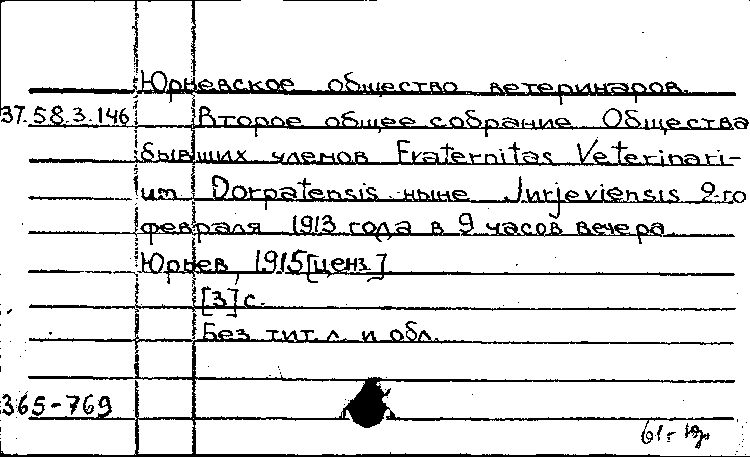 Юрьевское общество ветеринаров.
37.58.3.146 Второе общее собрание Общества
бывших членов Fraternitas Veterinari-
um Dorpatensis ныне Jurjeviensis 2-го
февраля 1913 года в 9 часов вечера.
Юрьев, 1915 [ценз.]
[3] с.
Без тит. л. и обл.
365-769
61-